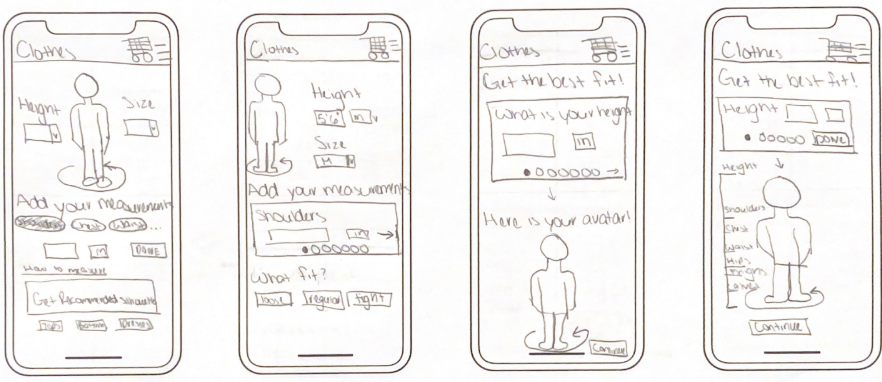 Clothes
Height
Size
Add your measurements
Shoulders Chest Waist ...
in DONE
How to measure
Get Recommended silhouette
Tops Bottoms Dresses
Clothes
Height
5'6" in
Size
M
Add your measurements
Shoulders
in →
What fit?
loose regular tight
Clothes
Get the best fit!
What is your height
in
→
↓
Here is your avatar!
Continue
Clothes
Get the best fit!
Height
DONE
↓
Height
Shoulders
Chest
Waist
Hips
Thighs
Calves
Continue